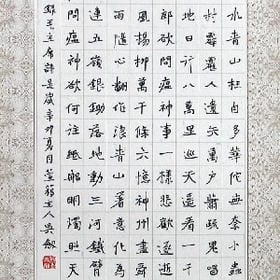 水青山枉自多華佗無奈小虫
村薜荔人遺矢萬戶蕭疏鬼唱
地日行八萬里巡天遙看一千
郎欲問瘟神事一樣悲歡逐逝
風楊柳萬千條六億神州盡舜
雨隨心翻作浪青山著意化為
連五嶺銀鋤落地動三河鐵臂
問瘟神欲何往紙船明燭照天
毛主席詩是歲辛卯夏月主人吳